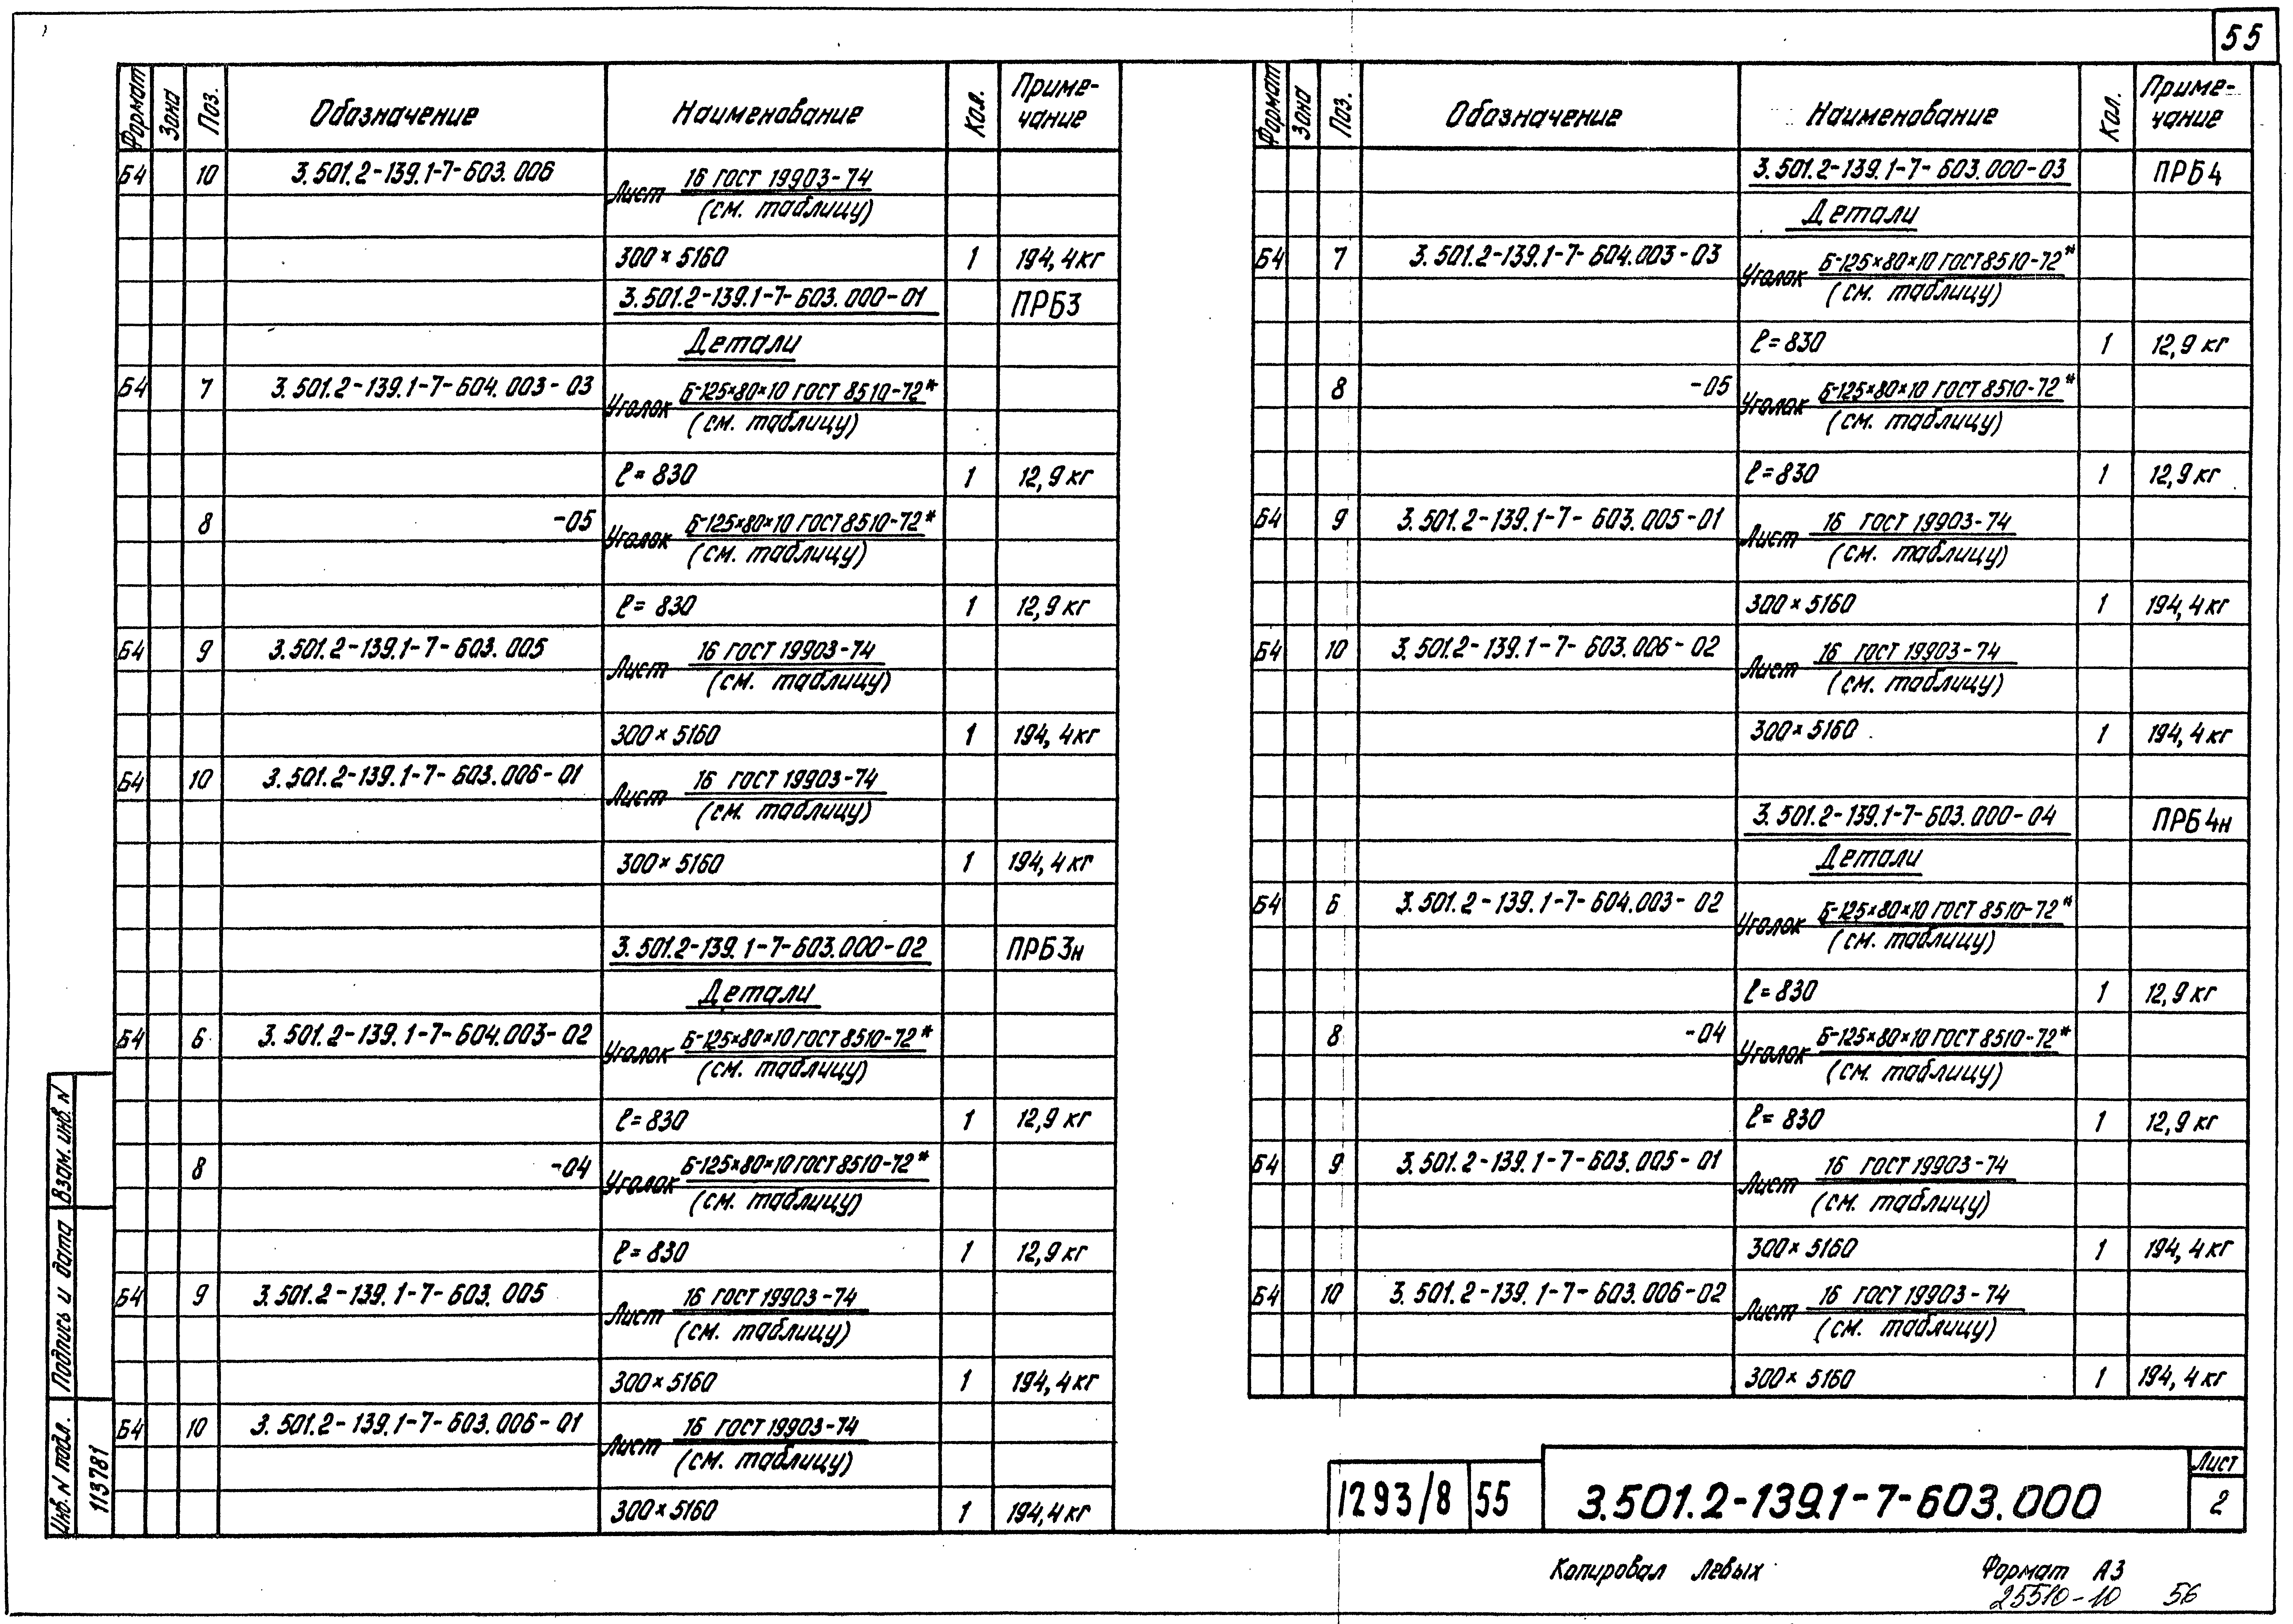 55
Формат Зона Поз. Обозначение Наименование Кол. Примечание
Б4 10 3.501.2-139.1-7-603.006 Лист 16 ГОСТ 19903-74
(см. таблицу)
300×5160 1 194,4кг
3.501.2-139.1-7-603.000-01 ПРБ3
Детали
Б4 7 3.501.2-139.1-7-604.003-03 Уголок Б-125×80×10 ГОСТ 8510-72*
(см. таблицу)
ℓ=830 1 12,9кг
8 -05 Уголок Б-125×80×10 ГОСТ 8510-72*
(см. таблицу)
ℓ=830 1 12,9кг
Б4 9 3.501.2-139.1-7-603.005 Лист 16 ГОСТ 19903-74
(см. таблицу)
300×5160 1 194,4кг
Б4 10 3.501.2-139.1-7-603.006-01 Лист 16 ГОСТ 19903-74
(см. таблицу)
300×5160 1 194,4кг
3.501.2-139.1-7-603.000-02 ПРБ3н
Детали
Б4 6 3.501.2-139.1-7-604.003-02 Уголок Б-125×80×10 ГОСТ 8510-72*
(см. таблицу)
ℓ=830 1 12,9кг
8 -04 Уголок Б-125×80×10 ГОСТ 8510-72*
(см. таблицу)
ℓ=830 1 12,9кг
Б4 9 3.501.2-139.1-7-603.005 Лист 16 ГОСТ 19903-74
(см. таблицу)
300×5160 1 194,4кг
Б4 10 3.501.2-139.1-7-603.006-01 Лист 16 ГОСТ 19903-74
(см. таблицу)
300×5160 1 194,4кг
Формат Зона Поз. Обозначение Наименование Кол. Примечание
3.501.2-139.1-7-603.000-03 ПРБ4
Детали
Б4 7 3.501.2-139.1-7-604.003-03 Уголок Б-125×80×10 ГОСТ 8510-72*
(см. таблицу)
ℓ=830 1 12,9кг
8 -05 Уголок Б-125×80×10 ГОСТ 8510-72*
(см. таблицу)
ℓ=830 1 12,9кг
Б4 9 3.501.2-139.1-7-603.005-01 Лист 16 ГОСТ 19903-74
(см. таблицу)
300×5160 1 194,4кг
Б4 10 3.501.2-139.1-7-603.006-02 Лист 16 ГОСТ 19903-74
(см. таблицу)
300×5160 1 194,4кг
3.501.2-139.1-7-603.000-04 ПРБ4н
Детали
Б4 6 3.501.2-139.1-7-604.003-02 Уголок Б-125×80×10 ГОСТ 8510-72*
(см. таблицу)
ℓ=830 1 12,9кг
8 -04 Уголок Б-125×80×10 ГОСТ 8510-72*
(см. таблицу)
ℓ=830 1 12,9кг
Б4 9 3.501.2-139.1-7-603.005-01 Лист 16 ГОСТ 19903-74
(см. таблицу)
300×5160 1 194,4кг
Б4 10 3.501.2-139.1-7-603.006-02 Лист 16 ГОСТ 19903-74
(см. таблицу)
300×5160 1 194,4кг
Инв. N подл. Подпись и дата Взам. инв. N
113781
1293/8 55 3.501.2-139.1-7-603.000 Лист
2
Копировал Левых Формат А3
25510-10 56